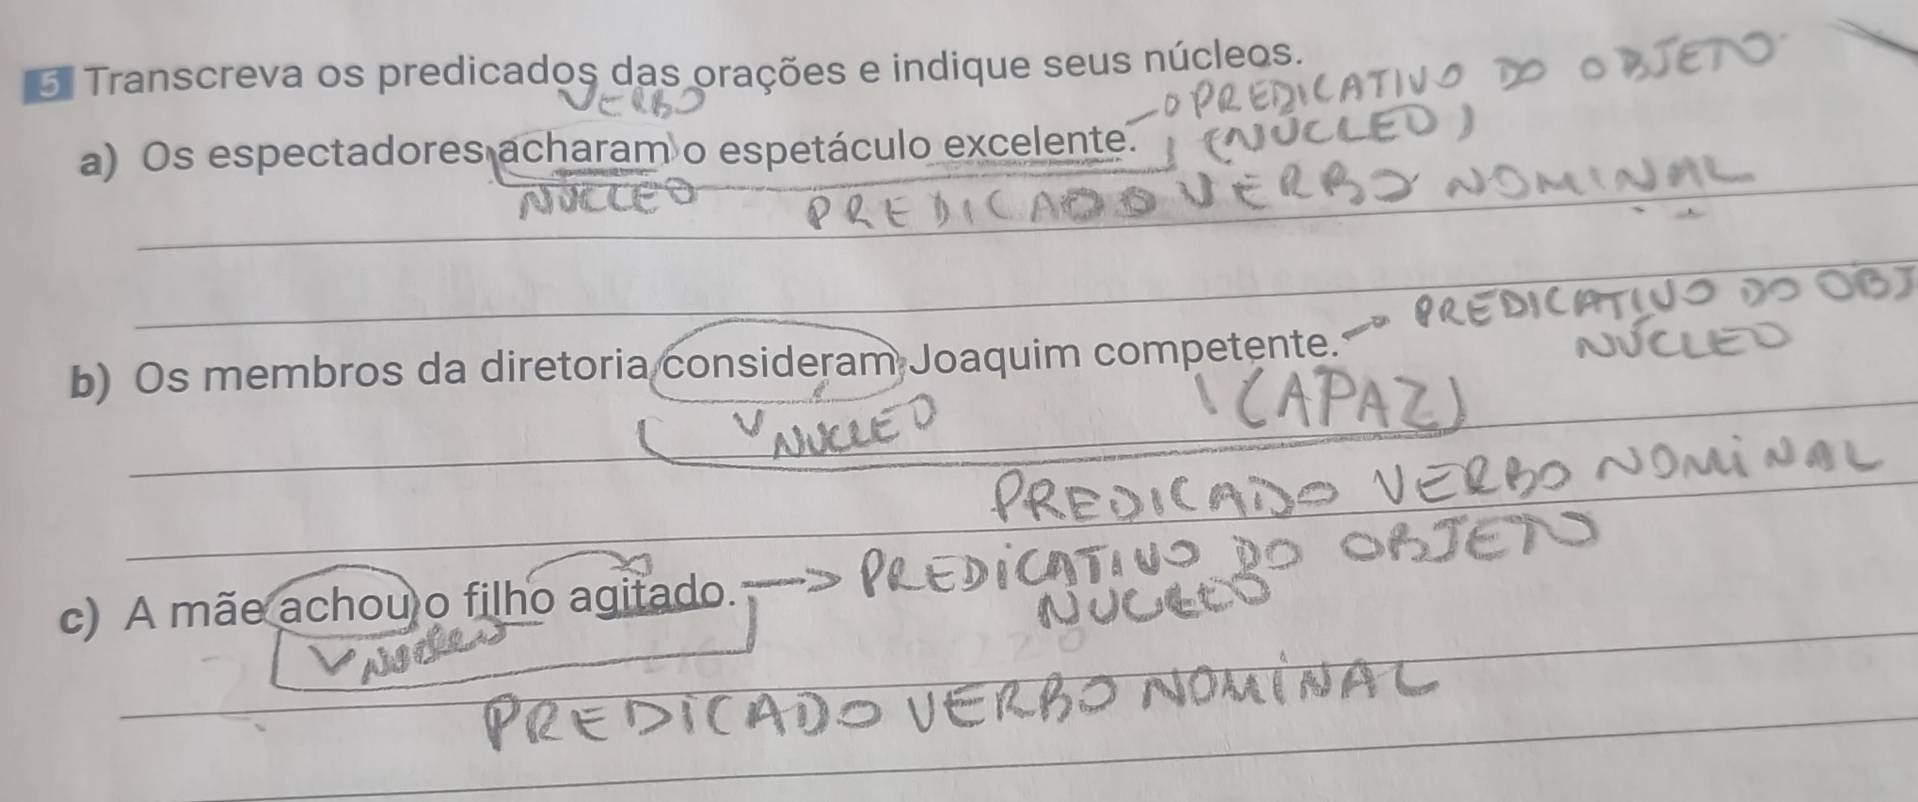 5 Transcreva os predicados das orações e indique seus núcleos.
VERBO
PREDICATIVO DO OBJETO
a) Os espectadores acharam o espetáculo excelente.
(NÚCLEO)
NÚCLEO
PREDICADO VERBO NOMINAL
PREDICATIVO DO OBJ
b) Os membros da diretoria consideram Joaquim competente.
NÚCLEO
V NÚCLEO
(CAPAZ)
PREDICADO VERBO NOMINAL
c) A mãe achou o filho agitado. → PREDICATIVO DO OBJETO
NÚCLEO
V NÚCLEO
PREDICADO VERBO NOMINAL